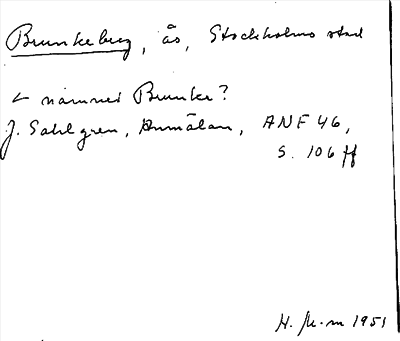 Brunkeberg, ås, Stockholms stad
< namnet Brunke?
J. Sahlgren, Anmälan, ANF 46,
S. 106 ff
H. M-m 1951